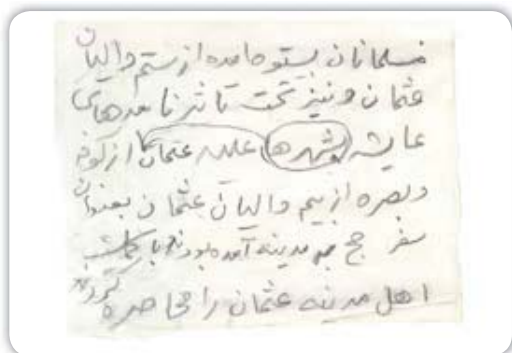 مسلمانان بستوه آمده از ستم والیان
عثمان و نیز تحت تاثیر نامه‌های
عایشه به شهرها علیه عثمان از کوفه
و بصره از بیم والیان عثمان بعنوان
سفر حج به مدینه آمده بودند با
اهل مدینه عثمان را محاصره کردند